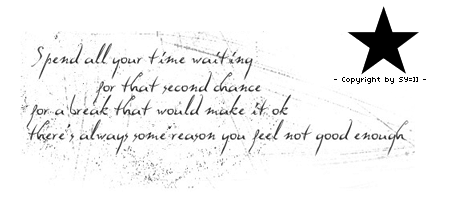 Spend all your time waiting
for that second chance
for a break that would make it ok
there's always some reason you feel not good enough
- Copyright by SY=]] -